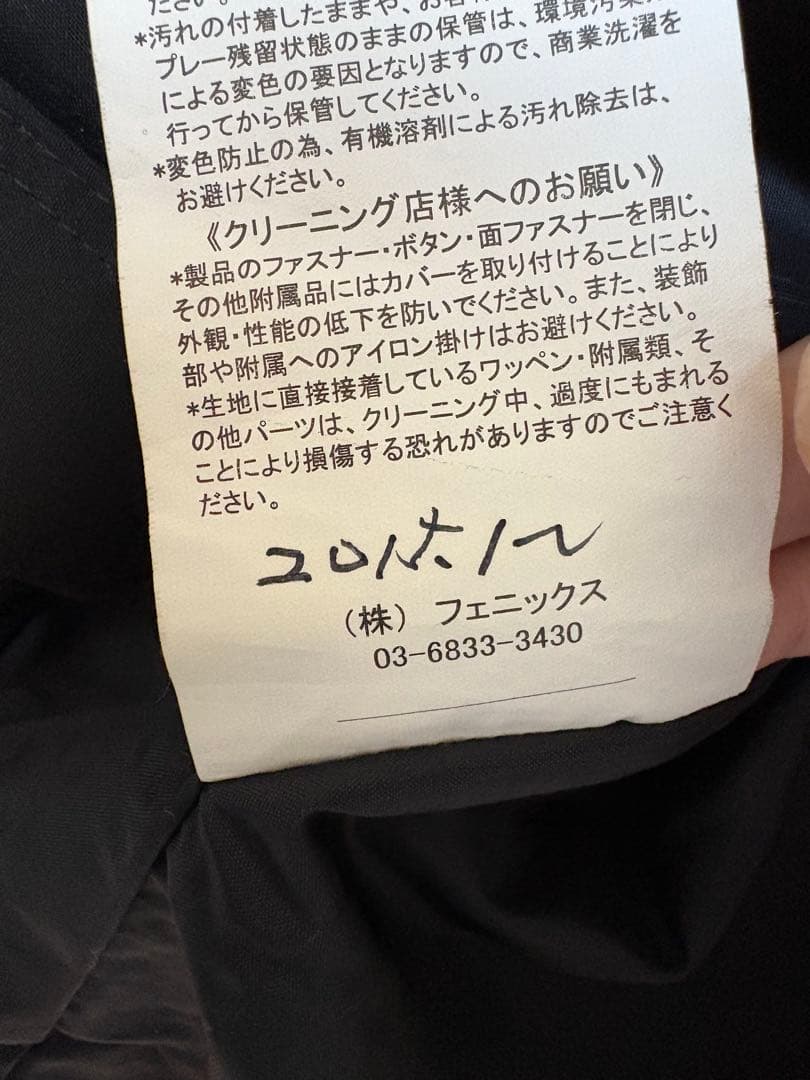 ださい。
*汚れの付着したままや、お客
プレー残留状態のままの保管は、環境汚染
による変色の要因となりますので、商業洗濯を
行ってから保管してください。
*変色防止の為、有機溶剤による汚れ除去は、
お避けください。
《クリーニング店様へのお願い》
*製品のファスナー・ボタン・面ファスナーを閉じ、
その他附属品にはカバーを取り付けることにより
外観・性能の低下を防いでください。また、装飾
部や附属へのアイロン掛けはお避けください。
*生地に直接接着しているワッペン・附属類、そ
の他パーツは、クリーニング中、過度にもまれる
ことにより損傷する恐れがありますのでご注意く
ださい。
2015.12
（株） フェニックス
03-6833-3430